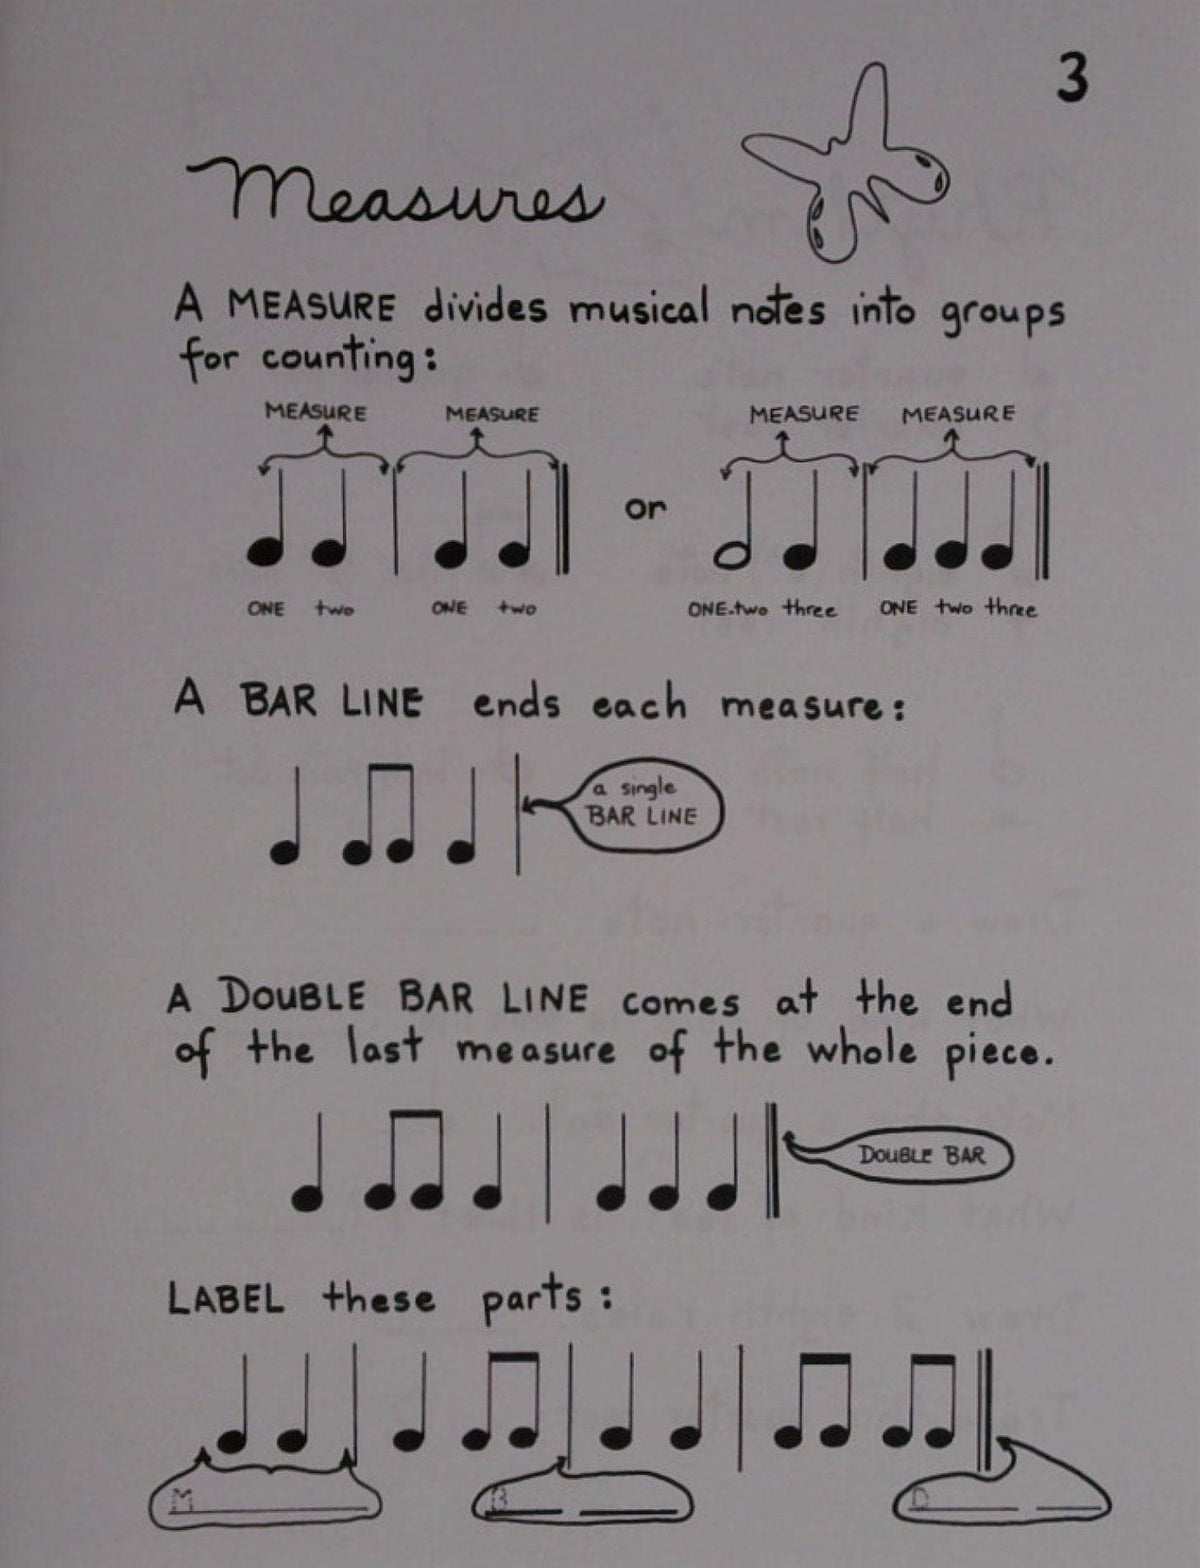 3
Measures
A MEASURE divides musical notes into groups
for counting:
MEASURE MEASURE MEASURE MEASURE
or
ONE two ONE two ONE-two three ONE two three
A BAR LINE ends each measure:
a single
BAR LINE
A DOUBLE BAR LINE comes at the end
of the last measure of the whole piece.
DOUBLE BAR
LABEL these parts:
M B D